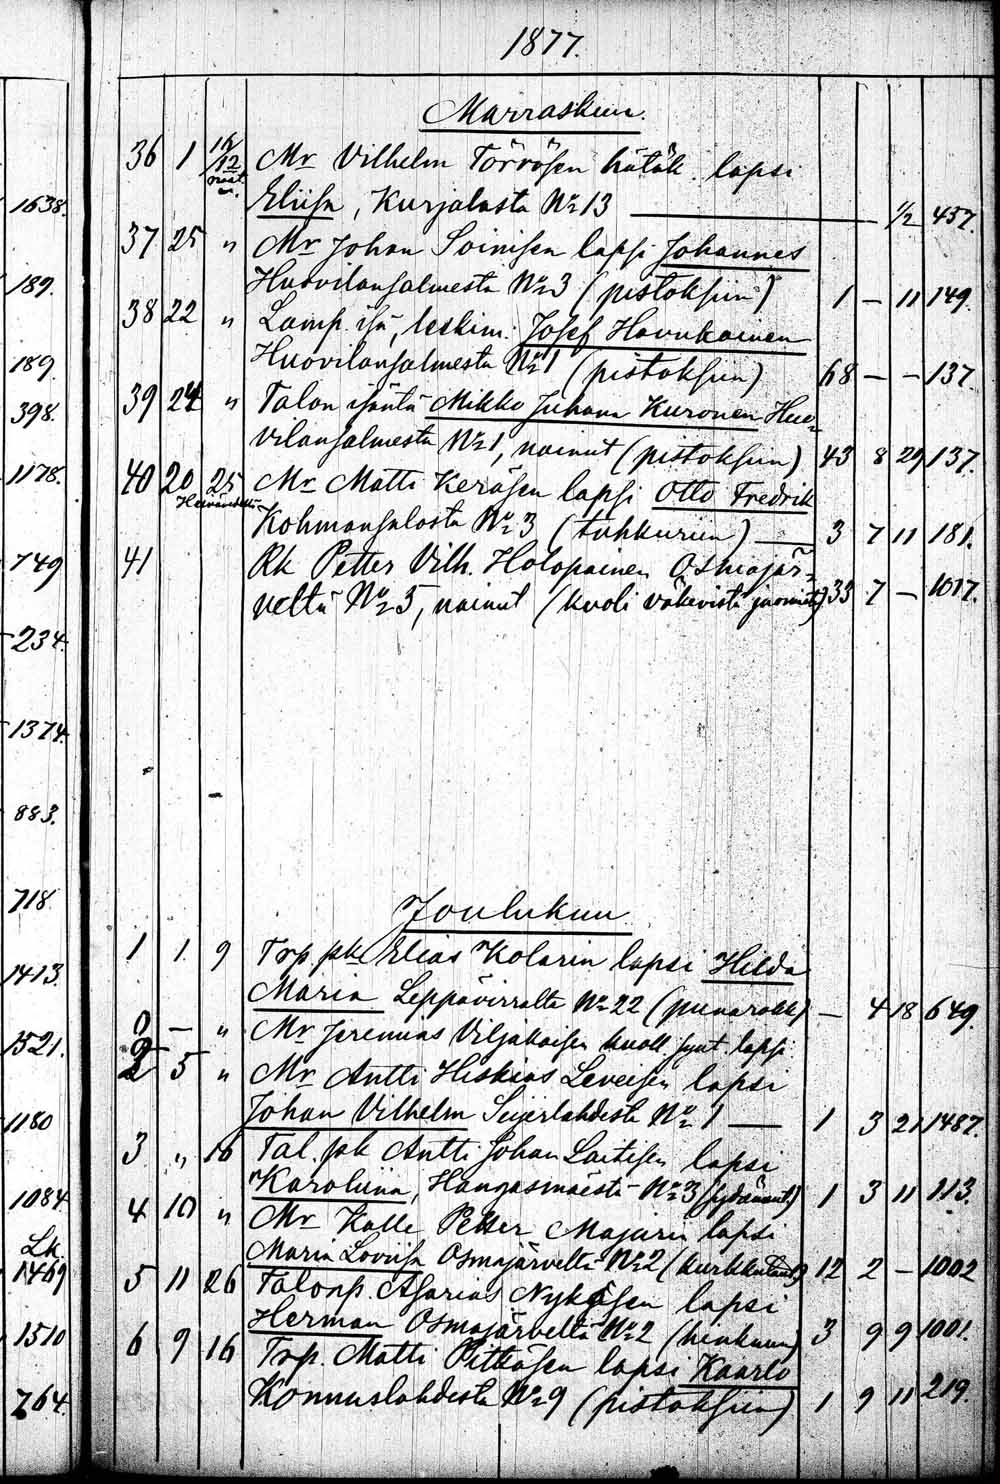 1877.
Marraskuu.
36 1 16/12 Mr Vilhelm Törrösen hätäk. lapsi
Eliisa, Kurjalasta No 13 — ½ 437.
37 25 " Mr Johan Soinisen lapsi Johannes
Huovilansalmesta No 3 (pistoksiin) 1 — 11 149.
38 22 " Lamp. isä, leskim. Josef Havukainen
Huovilansalmesta No 1 (pistoksiin) 68 — — 137.
39 24 " Talon isäntä Mikko Juhana Kuronen Huo-
vilansalmesta No 1, nainut (pistoksiin) 43 8 29 137.
40 20 25 Mr Matti Keräsen lapsi Otto Fredrik
Kohmansalosta No 3 (tuhkuriin) — 3 7 11 181.
41 Rk Petter Vilh. Holopainen Osmajär-
veltä No 5, nainut (kuoli väkevistä juomista) 33 7 — 1017.
Joulukuu
1 1. 9 Trp. pka Elias Kolarin lapsi Hilda
Maria Leppävirralta No 22 (punarokk) — 4 18 649.
0 — " Mr Jeremias Viljakaisen kuoll. synt. lapsi
2 5 " Mr Antti Hiskias Leveisen lapsi
Johan Vilhelm Seijerlahdesta No 1 — 1 3 21 1487.
3 " 16 Tal. pk Antti Johan Laitisen lapsi
Karoliina, Hangasmäestä No 3 (sydänant.) 1 3 11 113.
4 10 " Mr Kalle Petter Majurin lapsi
Maria Loviisa Osmajärveltä No 2 (kurkkutaut) 12 2 — 1002
5 11 26 Talonp. Asarias Nykäsen lapsi
Herman Osmajärveltä No 2 (henkuun) 3 9 9 1001.
6 9 16 Trp. Matti Pitkäsen lapsi Kaarlo
Konnuslahdesta No 9 (pistoksiin) 1 9 11 219.
1638.
189.
189.
398.
1178.
749
234.
1374.
883.
718
1413.
1521.
1180
1084
Lk.
1469
1510
764.